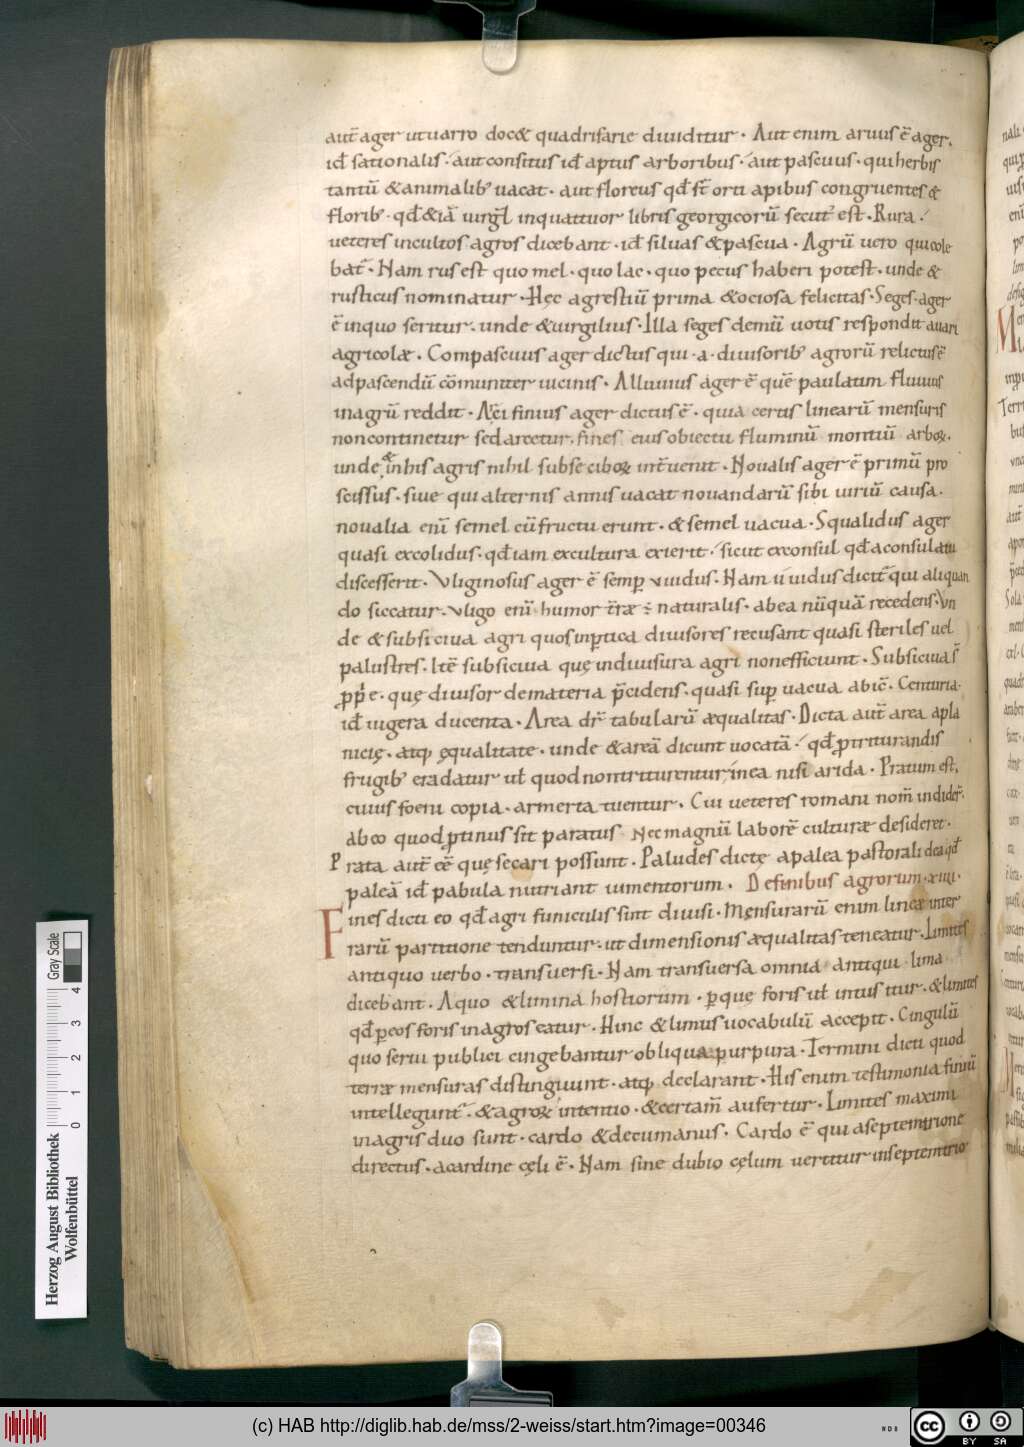 aut̄ ager ut uarro doc& quadrifarie diuiditur · Aut enim aruus ē ager,
id̄ sationalis · aut consitus id̄ aptus arboribus · aut pascuus · qui herbis
tantū & animalib; uacat · aut floreus qd̄ st̄ orti apibus congruentes &
florib; · qd̄ & iā uirgl̄ in quattuor libris georgicorū secut; est · Rura ·
ueteres incultos agros dicebant · id̄ siluas & pascua · Agrū uero qui cole
bat̄ · Nam rus est quo mel · quo lac · quo pecus haberi potest · unde &
rusticus nominatur · Hęc agrestiū prima & ociosa felicitas · Seges · ager
ē in quo seritur · unde & uirgilius · Illa seges demū uotis respondit auari
agricolæ · Compascuus ager dictus qui · a · diuisorib; agrorū relictus ē
ad pascendū cōmuniter uicinis · Alluuius ager ē quē paulatim fluuius
in agrū reddit · Arci finius ager dictus ē · quia certis linearū mensuris
non continetur sed arcetur · fines eius obiectu fluminū montiū arboꝝ ·
unde & in his agris nihil subseciboꝝ int̄uenit · Noualis ager ē primū pro
scissus · siue qui alternis annis uacat nouandarū sibi uiriū causa ·
noualia enī semel cū fructu erunt · & semel uacua · Squalidus ager
quasi excolidus · qd̄ iam excultura exierit · sicut exconsul qd̄ a consulatu
discesserit · Vliginosus ager ē semp̱ uuidus · Nam uuidus dicit̄ qui aliquan
do siccatur · uligo enī humor t̄ræ ē naturalis · ab ea nūquā recedens · Vn
de & subsiciua agri quos in p̱tica diuisores recusant quasi steriles uel
palustres · Itē subsiciua quę in diuisura agri non efficiunt · Subsiciua s̄
pp̱e · quę diuisor de materia p̄cidens · quasi sup̱ uacua abic̄ · Centuria ·
id̄ iugera ducenta · Area dr̄ tabularū æqualitas · Dicta aut̄ area a pla
nicię · atq; ęqualitate · unde & areā dicunt uocatā · qd̄ p̱ triturandis
frugib; eradatur ul̄ quod non triturentur in ea nisi arida · Pratum est,
cuius foeni copia · armerta tuentur · Cui ueteres romani nom̄ indider̄ ·
ab eo quod p̱tinus sit paratus Nec magnū laborē culturæ desideret ·
Prata aut̄ ēē quę secari possunt · Paludes dictę a palea pastorali dea qd̄
paleā id̄ pabula nutriant iumentorum · De finibus agrorum · xiiii ·
Fines dicti eo qd̄ agri funiculis sint diuisi · Mensurarū enim lineæ inter
rarū partitione tenduntur · ut dimensionis æqualitas teneatur · Limites
antiquo uerbo · transuersi · Nam transuersa omnia antiqui · lima
dicebant · A quo & limina hostiorum · p̱ quę foris ul̄ intus itur · & limites
qd̄ p̱ eos foris in agros eatur · Hinc & limus uocabulū accepit · Cingulū
quo serui publici cingebantur obliqua purpura · Termini dicti quod
terræ mensuras distinguunt · atq; declarant · His enim testimonia finiū
intelleguntur · & agroꝝ intentio · & certam̄ aufertur · Limites maximi
in agris duo sunt · cardo & decumanus · Cardo ē qui a septemtrione
directus · a cardine cęli ē · Nam sine dubio cęlum uertitur in septemtrio
Herzog August Bibliothek
Wolfenbüttel
Gray Scale
0 1 2 3 4
(c) HAB http://diglib.hab.de/mss/2-weiss/start.htm?image=00346
cc BY SA